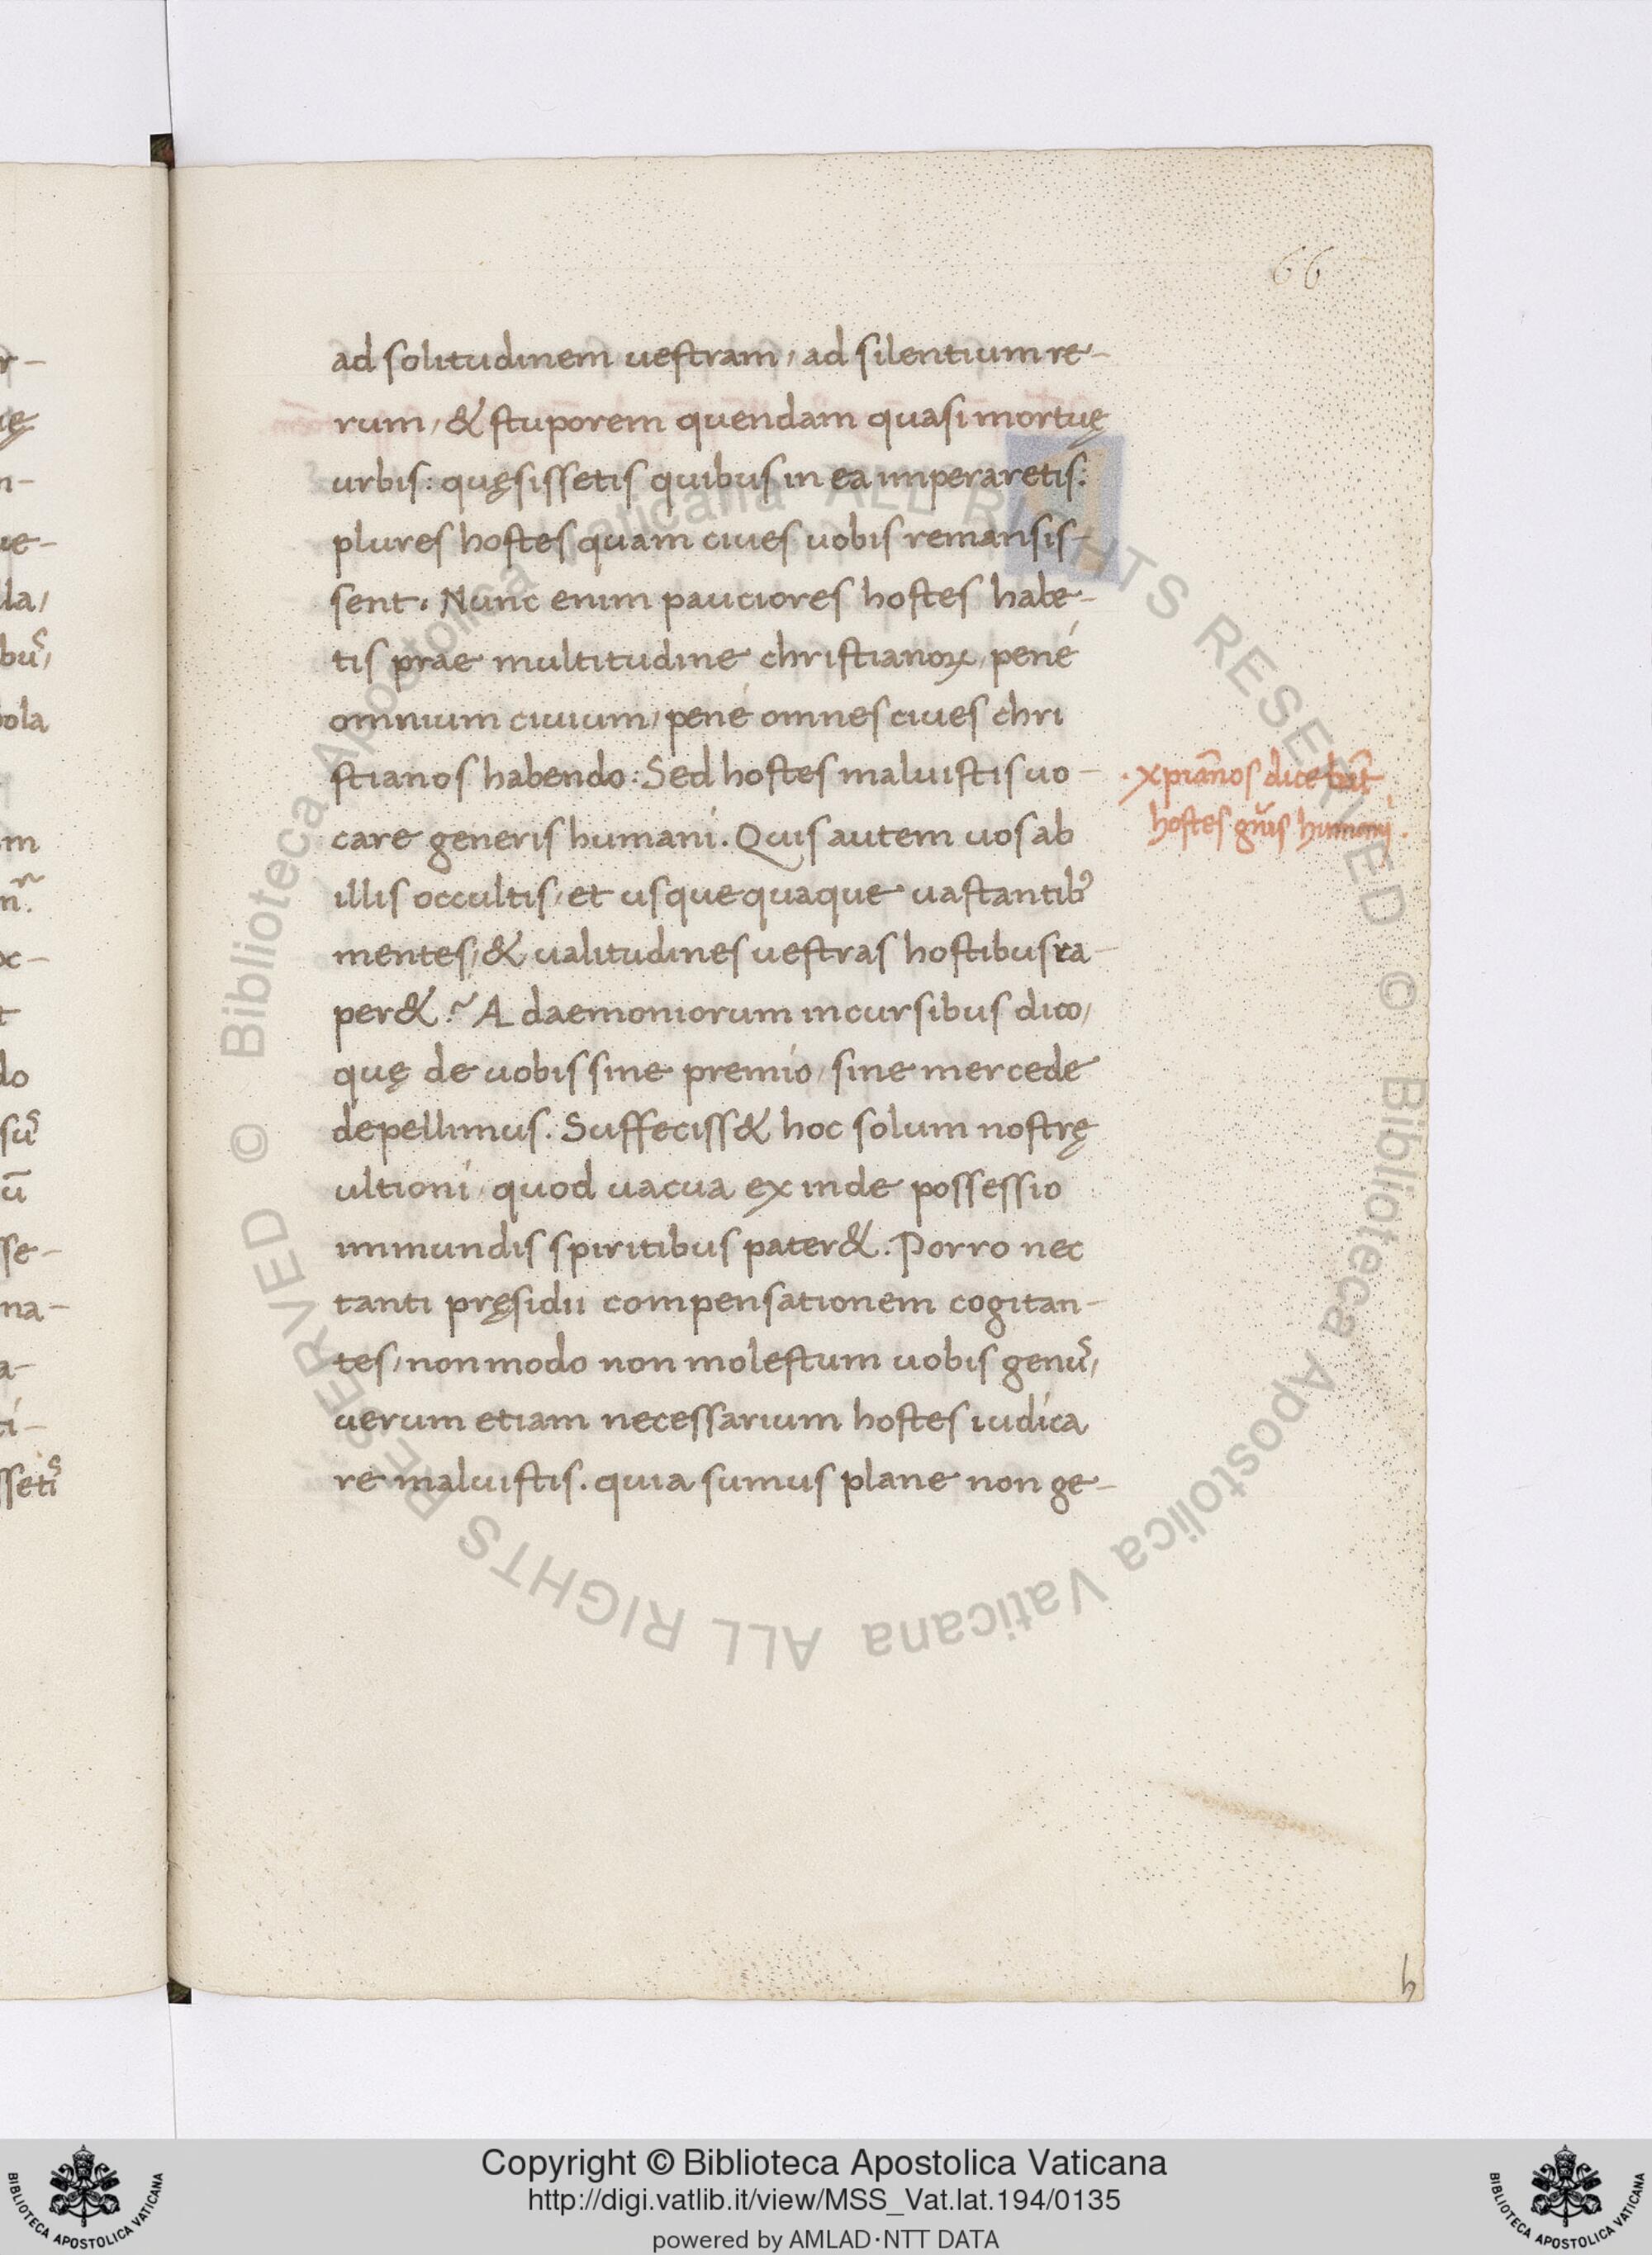 66
ad solitudinem uestram, ad silentium re-
rum, & stuporem quendam quasi mortuę
urbis: quęsissetis quibus in ea imperaretis:
plures hostes quam ciues uobis remansis-
sent. Nunc enim pauciores hostes habe-
tis prae multitudine christianoꝝ, pené
omnium ciuium, pené omnes ciues chri
stianos habendo: Sed hostes maluistis uo-
care generis humani. Quis autem uos ab
illis occultis, et usquequaque uastantib᾽
mentes, & ualitudines uestras hostibus ra-
per&? A daemoniorum incursibus dico,
quę de uobis sine premio, sine mercede
depellimus. Suffeciss& hoc solum nostrę
ultioni, quod uacua exinde possessio
immundis spiritibus pater&. Porro nec
tanti pręsidii compensationem cogitan-
tes, non modo non molestum uobis genuˢ,
uerum etiam necessarium hostes iudica
re maluistis. quia sumus plane non ge-
xpiãnos dicebãt
hostes gñis humani.
h
r-
uę
n-
ue-
lla,
buˢ,
bola
m
n.
x-
t
do
suˢ
ū
sse-
na-
a-
ti-
ssetiˢ
© Biblioteca Apostolica Vaticana ALL RIGHTS RESERVED © Biblioteca Apostolica Vaticana ALL RIGHTS RESERVED
Copyright © Biblioteca Apostolica Vaticana
http://digi.vatlib.it/view/MSS_Vat.lat.194/0135
powered by AMLAD·NTT DATA
BIBLIOTECA APOSTOLICA VATICANA
BIBLIOTECA APOSTOLICA VATICANA